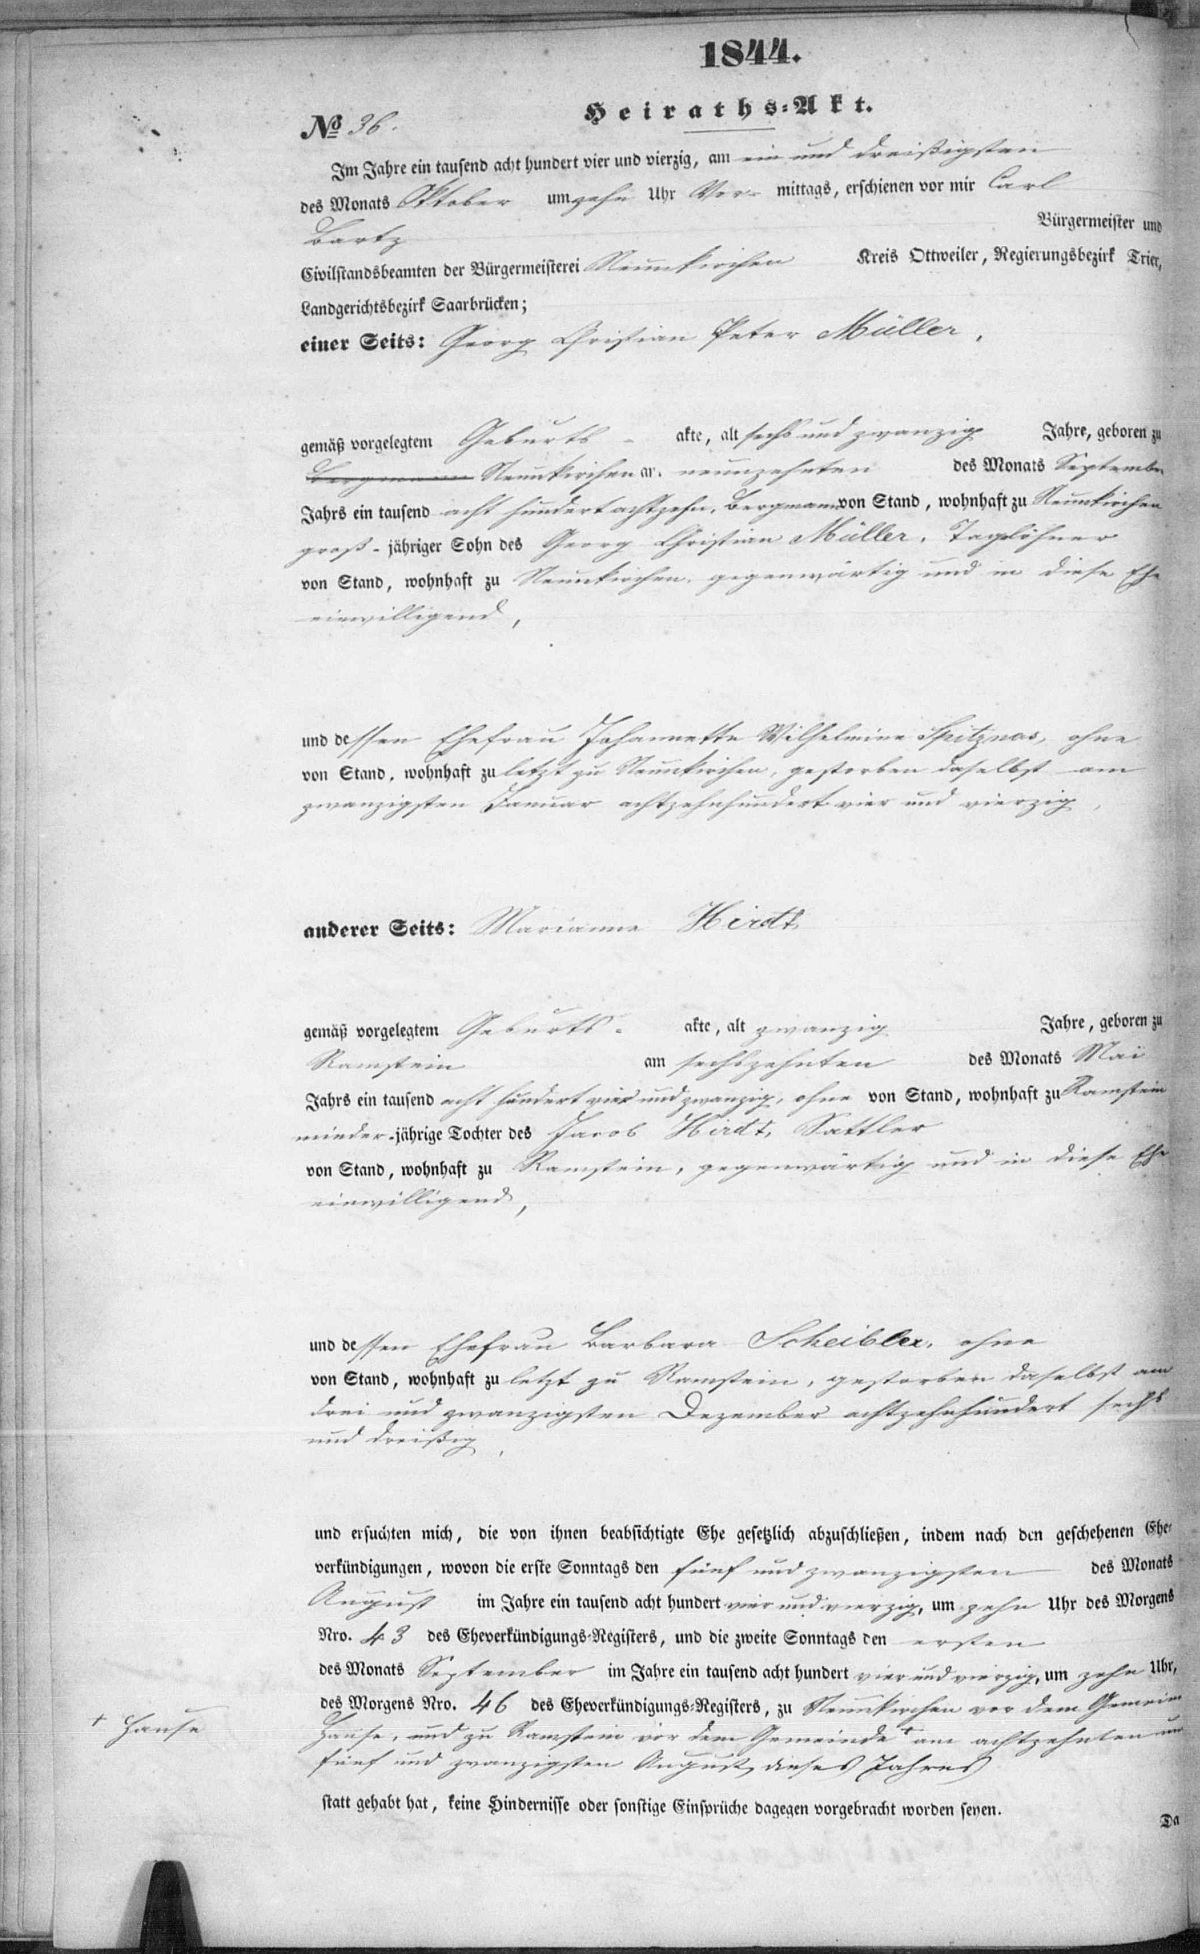 1844.
Heiraths-Akt.
No 36.
Im Jahre ein tausend acht hundert vier und vierzig, am ein und dreißigsten
des Monats Oktober um zehn Uhr Vor- mittags, erschienen vor mir Carl
Bartz Bürgermeister und
Civilstandsbeamten der Bürgermeisterei Neunkirchen Kreis Ottweiler, Regierungsbezirk Trier,
Landgerichtsbezirk Saarbrücken;
einer Seits: Georg Christian Peter Müller,
gemäß vorgelegtem Geburts- akte, alt sechs und zwanzig Jahre, geboren zu
Bergmann Neunkirchen am neunzehnten des Monats September
Jahrs ein tausend acht hundert achtzehn, Bergmann von Stand, wohnhaft zu Neunkirchen
groß-jähriger Sohn des Georg Christian Müller, Taglöhner
von Stand, wohnhaft zu Neunkirchen, gegenwärtig und in diese Ehe
einwilligend,
und dessen Ehefrau Johannette Wilhelmine Spitznas, ohne
von Stand, wohnhaft zu letzt zu Neunkirchen, gestorben daselbst am
zwanzigsten Januar achtzehnhundert vier und vierzig,
anderer Seits: Marianne Hirdt
gemäß vorgelegtem Geburts- akte, alt zwanzig Jahre, geboren zu
Ramstein am sechszehnten des Monats Mai
Jahrs ein tausend acht hundert vier und zwanzig, ohne von Stand, wohnhaft zu Ramstein
minder-jährige Tochter des Jacob Hirdt, Sattler
von Stand, wohnhaft zu Ramstein, gegenwärtig und in diese Ehe
einwilligend,
und dessen Ehefrau Barbara Scheibler, ohne
von Stand, wohnhaft zu letzt zu Ramstein, gestorben daselbst am
drei und zwanzigsten Dezember achtzehnhundert sechs
und dreißig,
und ersuchten mich, die von ihnen beabsichtigte Ehe gesetzlich abzuschließen, indem nach den geschehenen Ehe-
verkündigungen, wovon die erste Sonntags den fünf und zwanzigsten des Monats
August im Jahre ein tausend acht hundert vier und vierzig, um zehn Uhr des Morgens
Nro. 43 des Eheverkündigungs-Registers, und die zweite Sonntags den ersten
des Monats September im Jahre ein tausend acht hundert vier und vierzig, um zehn Uhr,
des Morgens Nro. 46 des Eheverkündigungs-Registers, zu Neunkirchen vor dem Gemein
+ Hause
Hause, und zu Ramstein vor dem Gemeinde + am achtzehnten und
fünf und zwanzigsten August dieses Jahres
statt gehabt hat, keine Hindernisse oder sonstige Einsprüche dagegen vorgebracht worden seyen.
Da